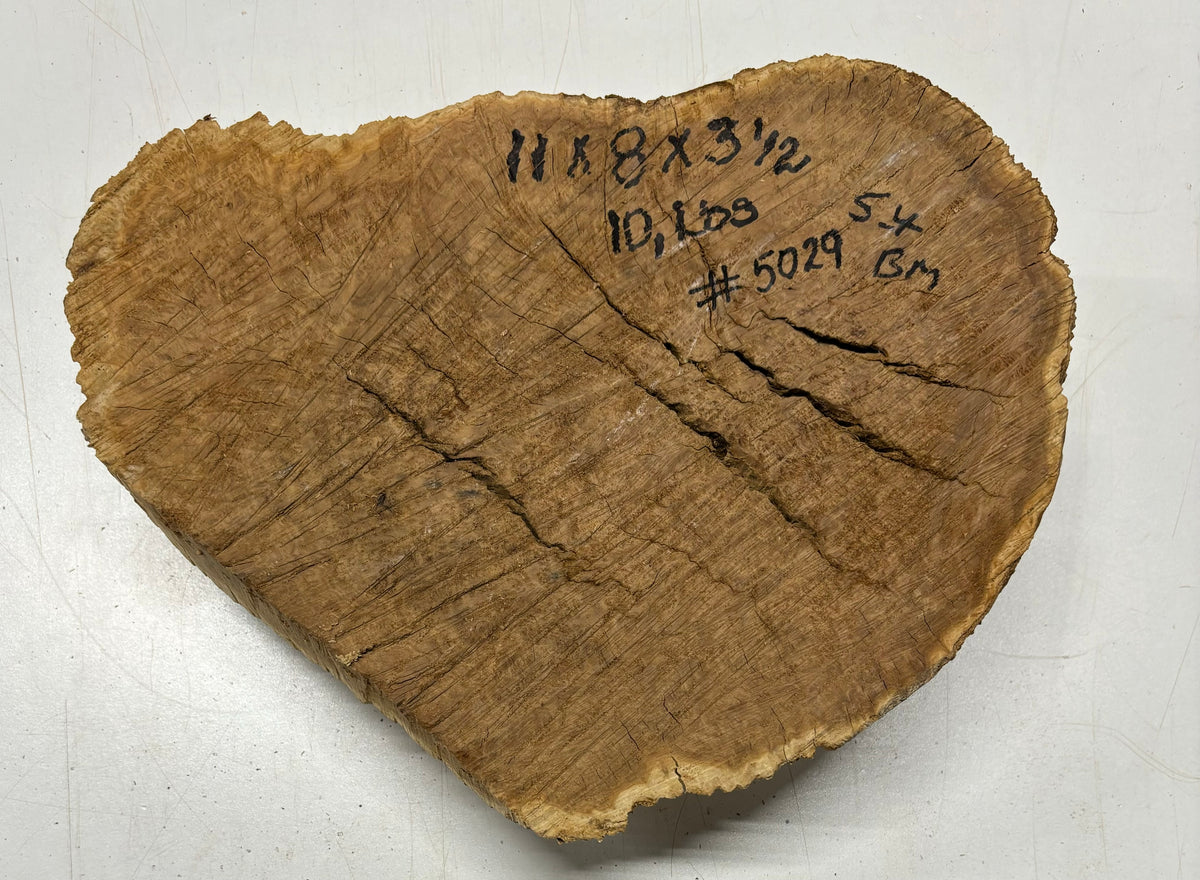 11 x 8 x 3 1/2
10, Lbs
#5029
5.4
Bm